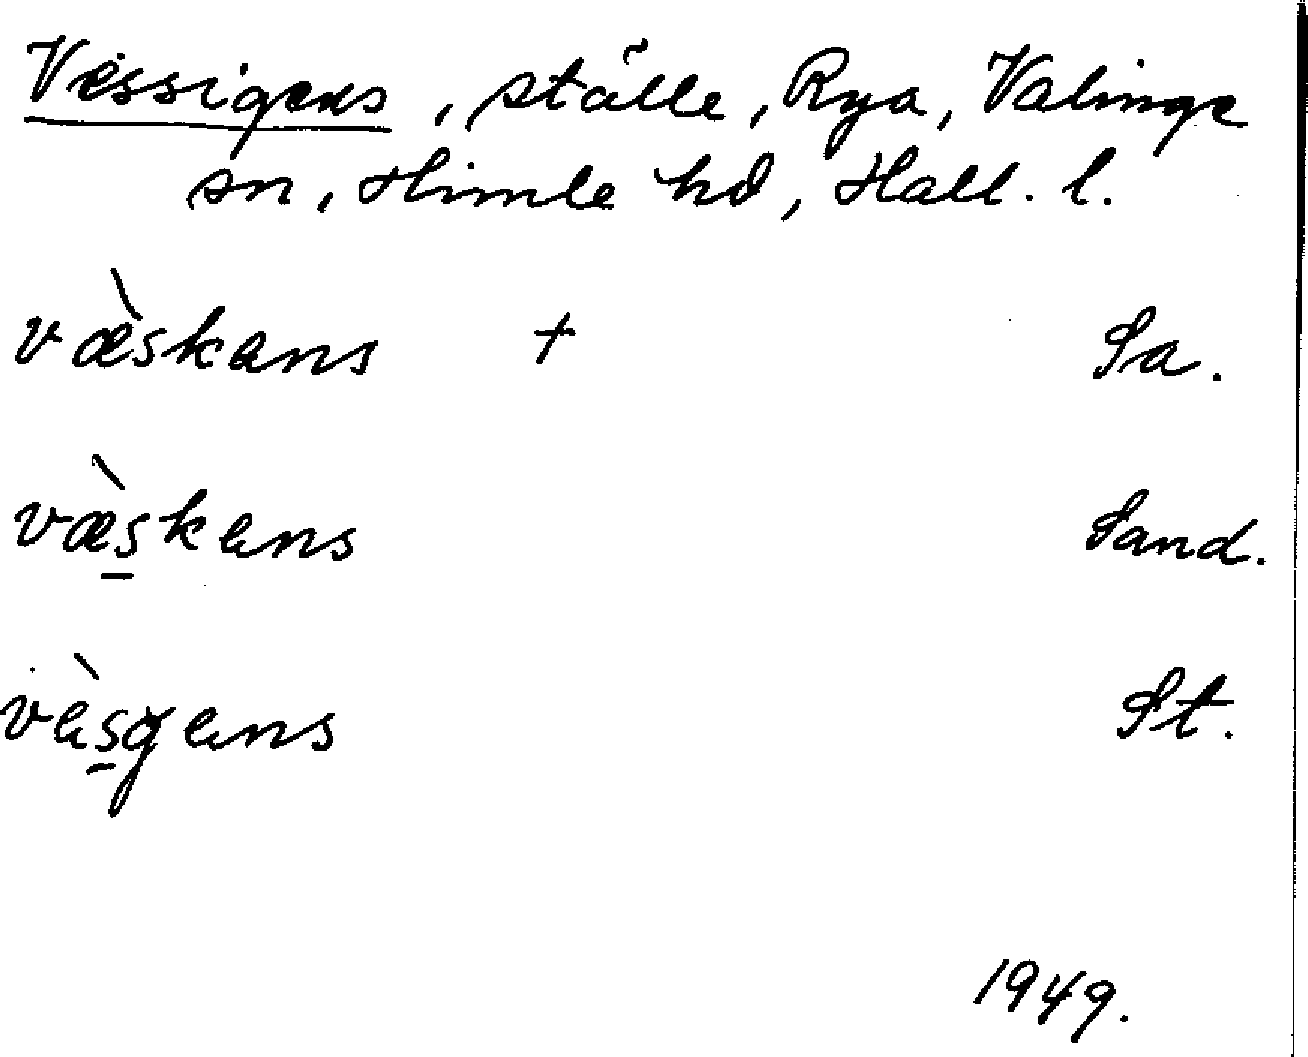 Vessigens, ställe, Rya, Valinge
sn, Himle hd, Hall. l.
væ̀skans + Sa.
væ̀s̠kens Sand.
vès̠gens St.
1949.